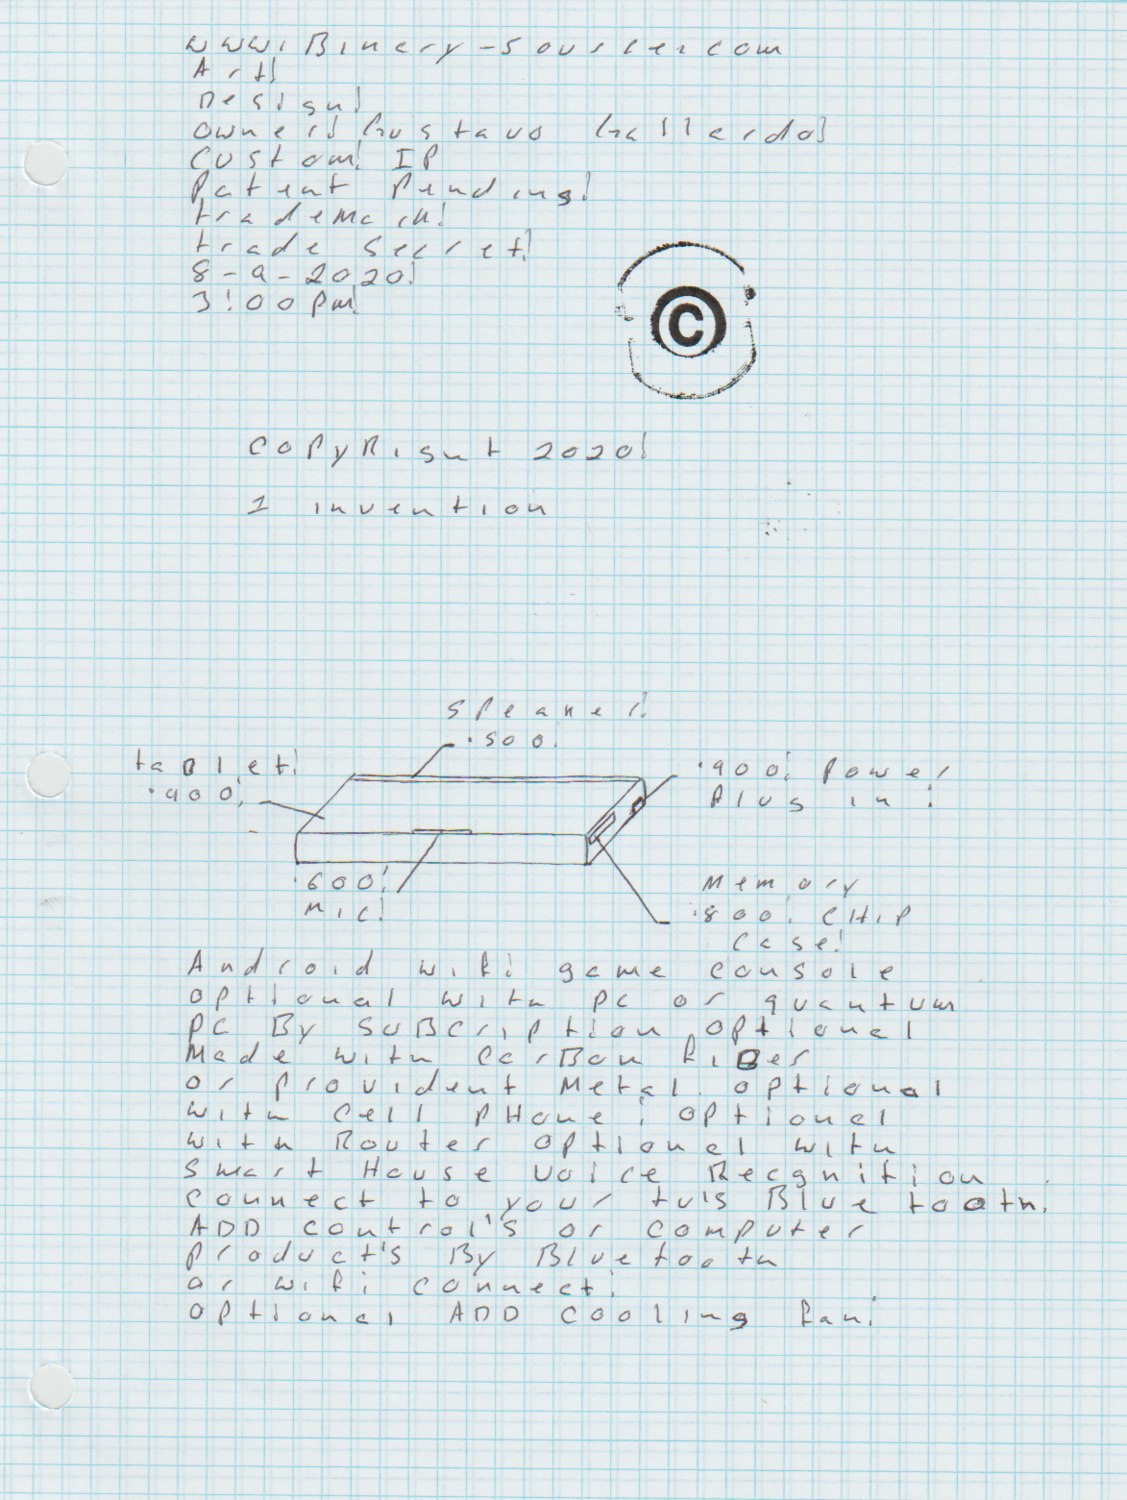 www.Binary-sources.com
Art!
Design!
owner! Gustavo Gallardo!
Custom! IP
Patent Pending!
trademark!
trade secret!
8-9-2020!
3:00 PM!
©
CoPyRight 2020!
1 invention
speaker!
.500!
tablet!
.400!
.900! Power
Plug in!
.600!
Mic!
Memory
.800! CHIP
Case!
Android wifi game console
optional with pc or quantum
PC By SuBcription optional
Made with CarBon fiBer
or provident Metal optional
with Cell pHone! optional
with Router optional with
smart House Voice Recgnition
connect to your tv's Bluetooth.
ADD control's or computer
product's By Bluetooth
or wifi connect!
optional ADD cooling fan!